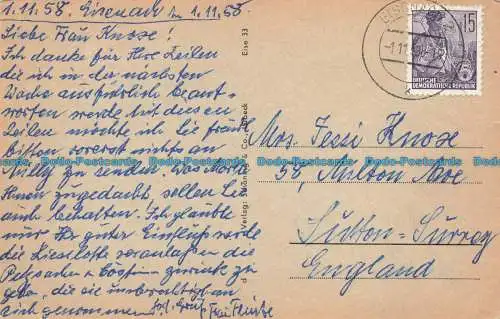 1.11.58. Eisenach, den 1.11.58.
Liebe Frau Knose!
Ich danke für Ihre Zeilen
die ich in der nächsten
Woche ausführlich beant-
worten werde. Mit diesen
Zeilen möchte ich Sie
bitten vorerst nichts an
Milly zu senden. Was
Ihnen zugedacht, sollen Sie
auch behalten. Ich glaubte
nur Ihr guter Einfluss werde
die Lieselotte veranlassen die
Pelzsachen & Costüm zurückzu
geben, die sie unberechtigt an
sich genommen. Gruß Frau
Eise 33
Verlag: & Co.
EISENACH
-1.11.58
15
5
DEUTSCHE
DEMOKRATISCHE REPUBLIK
Mrs. Jessi Knose
58, Milton Ave
Sutton-Surray
England
Dodo-Postcards Dodo-Postcards Dodo-Postcards Dodo-Postcards